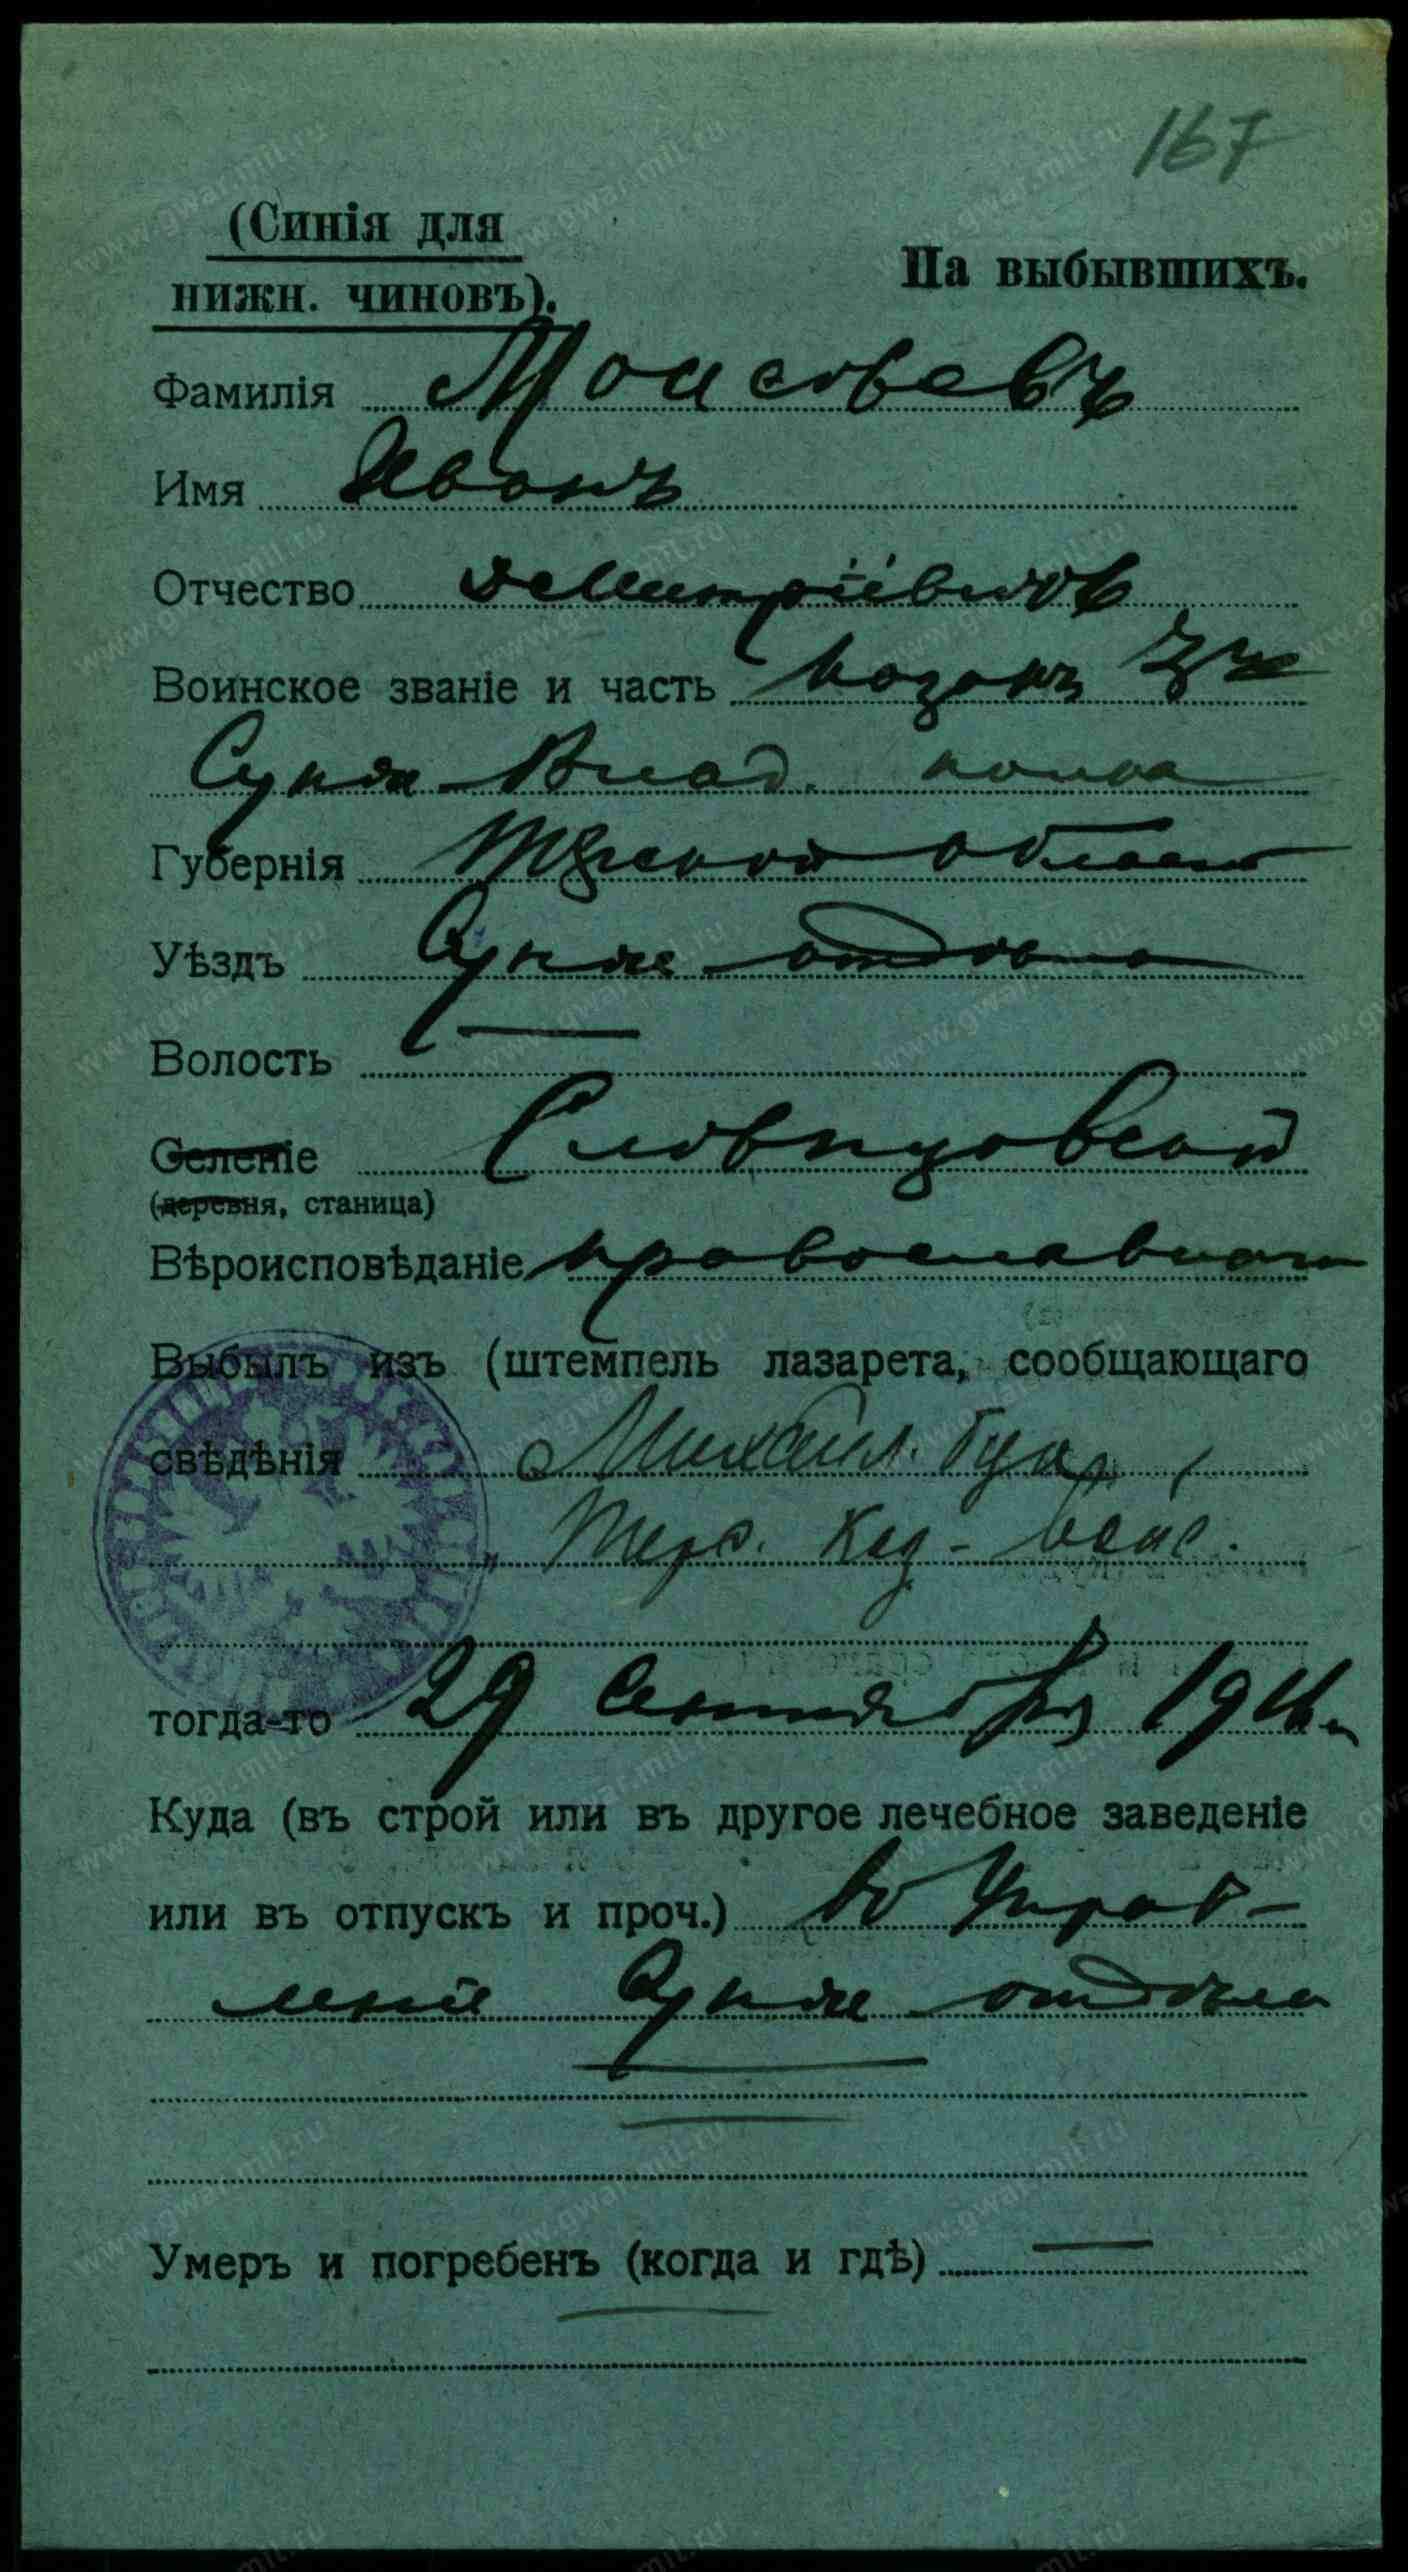 167
(Синія для
нижн. чиновъ).
На выбывшихъ.
Фамилія Моисѣевъ
Имя Иванъ
Отчество Дмитріевичъ
Воинское званіе и часть козакъ 3го
Сунж. Влад. полка
Губернія Терской области
Уѣздъ Сунж. отдѣла
Волость —
Селеніе Слѣпцовской
(деревня, станица)
Вѣроисповѣданіе православнаго
Выбылъ изъ (штемпель лазарета, сообщающаго
свѣдѣнія Михайл.
Терс. Каз. Войс.
тогда-то 29 сентября 191
Куда (въ строй или въ другое лечебное заведеніе
или въ отпускъ и проч.) въ Управ-
леніе Сунж. отдѣла
Умеръ и погребенъ (когда и гдѣ) —